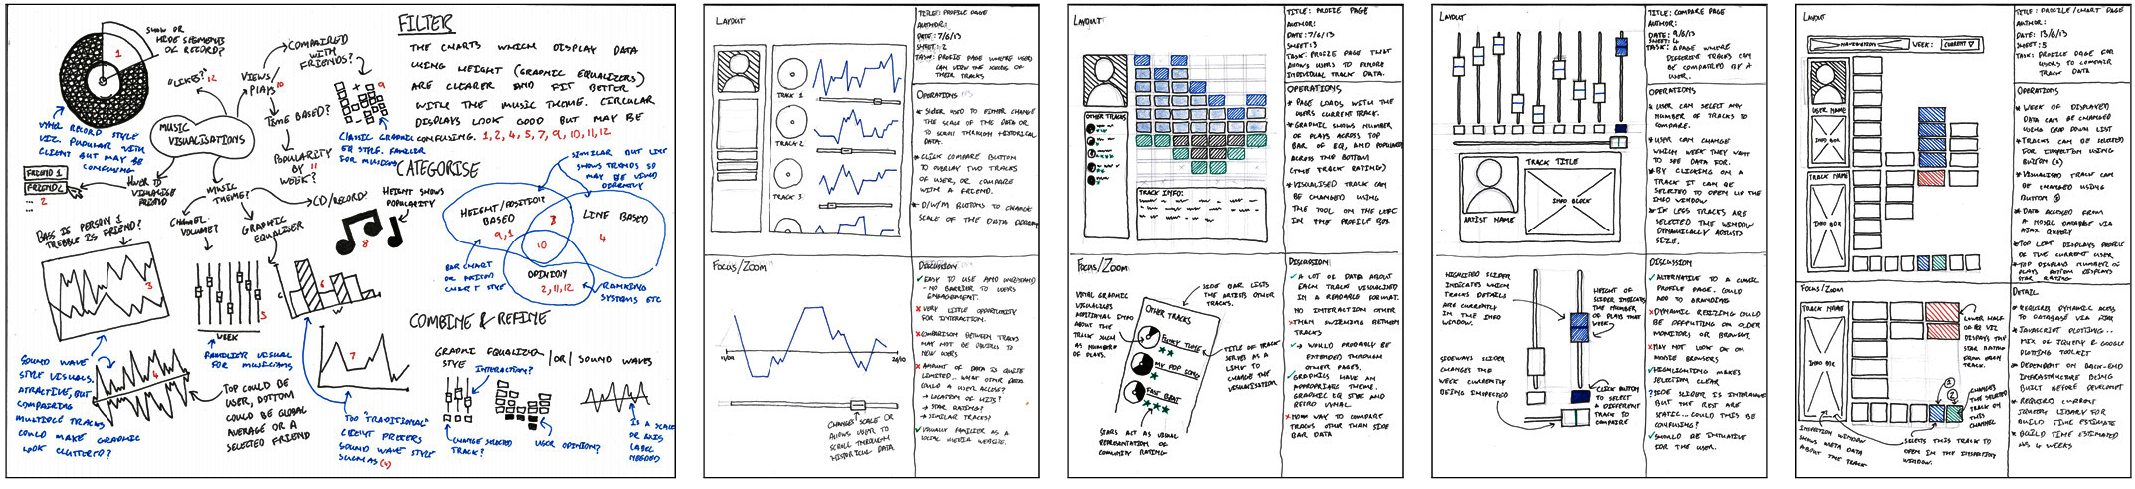 SHOW OR
HIDE SEGMENTS
OF RECORD?
1
"LIKES?" 12
VIEWS/
PLAYS 10
COMPAIRED
WITH
FRIENDS?
9
TIME BASED?
CLASSIC GRAPHIC
EQ STYLE. FAMILIAR
FOR MUSICIANS
VINYL RECORD STYLE
VIZ. POPULAR WITH
CLIENT BUT MAY BE
CONFUSING
MUSIC
VISUALISATIONS
POPULARITY
BY 11
WEEK?
FRIEND 1
FRIEND 2
2
HOVER TO
VISUALISE
FRIEND
MUSIC
THEME?
CD/RECORD?
HEIGHT SHOWS
POPULARITY
8
CHANNEL
VOLUME?
GRAPHIC
EQUALISER
BASS IS PERSON 1
TREBBLE IS FRIEND?
3
5
WEEK
6
FAMILIER VISUAL
FOR MUSICIANS
SOUND WAVE
STYLE VISUALS.
ATRACTIVE, BUT
COMPAIRING
MULTIPLE TRACKS
COULD MAKE GRAPHIC
LOOK CLUTTERED?
4
TOP COULD BE
USER, BOTTOM
COULD BE GLOBAL
AVERAGE OR A
SELECTED FRIEND
7
TOO "TRADITIONAL"
CLIENT PREFERS
SOUND WAVE STYLE
SUCH AS (4)
FILTER
THE CHARTS WHICH DISPLAY DATA
USING HEIGHT (GRAPHIC EQUALIZERS)
ARE CLEARER AND FIT BETTER
WITH THE MUSIC THEME. CIRCULAR
DISPLAYS LOOK GOOD BUT MAY BE
CONFUSING. 1, 2, 4, 5, 7, 9, 10, 11, 12
CATEGORISE
SIMILAR BUT LINE
SHOWS TRENDS SO
MAY BE VIEWED
DIFFERENTLY
HEIGHT/POSITION
BASED
9, 1
LINE BASED
4
10
OPINION
2, 11, 12
BAR CHART
OR
CHART STYLE
RANKING
SYSTEMS ETC
COMBINE & REFINE
GRAPHIC EQUALIZER /OR/ SOUND WAVES
STYLE
INTERACTION?
CHANGE SELECTED
TRACK?
USER OPINION?
IS A SCALE
OR AXIS
LABEL
NEEDED
LAYOUT
TRACK 1
TRACK 2
TRACK 3
TITLE: PROFILE PAGE
AUTHOR:
DATE: 7/6/13
SHEET: 2
TASK: PROFILE PAGE WHERE USER
CAN VIEW THE
THEIR TRACKS
OPERATIONS
* SLIDER USED TO EITHER CHANGE
THE SCALE OF THE DATA OR
TO SCROLL THROUGH HISTORICAL
DATA.
* CLICK COMPARE BUTTON
TO OVERLAY TWO TRACKS
OF USER, OR COMPARE
WITH A FRIEND.
* D/W/M BUTTONS TO CHANGE
SCALE OF THE DATA
FOCUS/ZOOM
CHANGES SCALE OR
ALLOWS USER TO
SCROLL THROUGH
HISTORICAL DATA
DISCUSSION
✓ EASY TO USE AND UNDERSTAND
- NO BARRIER TO USERS
ENGAGEMENT.
✗ VERY LITTLE OPPORTUNITY
FOR INTERACTION.
✗ COMPARISON BETWEEN TRACKS
MAY NOT BE OBVIOUS TO
NEW USERS
✗ AMOUNT OF DATA IS QUITE
LIMITED... WHAT OTHER DATA
COULD A USER ACCESS?
→ LOCATION OF HITS?
→ STAR RATING?
→ SIMILAR TRACKS?
✓ VISUALLY FAMILIER AS A
SOCIAL MEDIA WEBSITE.
LAYOUT
OTHER TRACKS
TRACK INFO:
TITLE: PROFILE PAGE
AUTHOR:
DATE: 7/6/13
SHEET: 3
TASK: PROFILE PAGE THAT
ALLOWS USERS TO EXPLORE
INDIVIDUAL TRACK DATA.
OPERATIONS
* PAGE LOADS WITH THE
USERS CURRENT TRACK.
* GRAPHIC SHOWS NUMBER
OF PLAYS ACROSS TOP
BAR OF EQ, AND
ACROSS THE BOTTOM
(THE TRACK RATING)
* VISUALISED TRACK CAN
BE CHANGED USING
THE TOOL ON THE LEFT
IN THE PROFILE BOX.
FOCUS/ZOOM
SIDE BAR LISTS
THE ARTISTS OTHER
TRACKS.
VINYL GRAPHIC
VISUALIZES
ADDITIONAL INFO
ABOUT THE
TRACK SUCH
AS NUMBER
OF PLAYS.
OTHER TRACKS
FUNKY TUNE
MY POP SONG
FAST BEAT
TITLE OF TRACK
SERVES AS A
LINK TO
CHANGE THE
VISUALISATION.
STARS ACT AS VISUAL
REPRESENTATION OF
COMMUNITY RATING
DISCUSSION
✓ A LOT OF DATA ABOUT
EACH TRACK VISUALISED
IN A READABLE FORMAT.
NO INTERACTION OTHER
✗ THAN SWITCHING BETWEEN
TRACKS
✓ → WOULD PROBABLY BE
EXTENDED THROUGH
OTHER PAGES.
✓ GRAPHICS HAVE AN
APPROPRIATE THEME.
GRAPHIC EQ STYLE AND
RETRO VINYL.
✗ NO WAY TO COMPARE
TRACKS OTHER THAN SIDE
BAR DATA
LAYOUT
ARTIST NAME
TRACK TITLE
INFO BLOCK
TITLE: COMPARE PAGE
AUTHOR:
DATE: 9/6/13
SHEET: 4
TASK: A PAGE WHERE
DIFFERENT TRACKS CAN
BE COMPAIRED BY A
USER.
OPERATIONS
* USER CAN SELECT ANY
NUMBER OF TRACKS TO
COMPARE.
* USER CAN CHANGE
WHICH WEEK THEY WANT
TO SEE DATA FOR.
* BY CLICKING ON A
TRACK IT CAN BE
SELECTED TO OPEN UP THE
INFO WINDOW
* IF LESS TRACKS ARE
SELECTED THE WINDOW
DYNAMICALLY ADJUSTS
SIZE.
HIGHLIGHTED SLIDER
INDICATES WHICH
TRACKS DETAILS
ARE CURRENTLY
IN THE INFO
WINDOW.
HEIGHT OF
SLIDER INDICATES
THE NUMBER
OF PLAYS THAT
WEEK
SIDEWAYS SLIDER
CHANGES THE
WEEK CURRENTLY
BEING INSPECTED
CLICK BUTTON
TO SELECT
A DIFFERENT
TRACK TO
COMPAIRE
DISCUSSION
✓ ALTERNATIVE TO A CLASSIC
PROFILE PAGE. COULD
ADD TO BRANDING
✗ DYNAMIC RESIZING COULD
BE OFFPUTTING ON OLDER
MONITORS OR BROWSERS
✗ MAY NOT LOOK OK ON
MOBILE BROWSERS
✓ HIGHLIGHTING MAKES
SELECTION CLEAR
? SIDE SLIDER IS INTERACTIVE
BUT THE REST ARE
STATIC... COULD THIS BE
CONFUSING?
✓ SHOULD BE INTUITIVE
FOR THE USER.
LAYOUT
NAVIGATION
WEEK: CURRENT
USER NAME
INFO BOX
TRACK NAME
INFO BOX
TITLE: PROFILE/CHART PAGE
AUTHOR:
DATE: 13/6/13
SHEET: 5
TASK: PROFILE PAGE FOR
USERS TO COMPARE
TRACK DATA
OPERATIONS
* WEEK OF DISPLAYED
DATA CAN BE CHANGED
USING DROP DOWN LIST
* TRACKS CAN BE SELECTED
FOR INSPECTION USING
BUTTON (1)
* VISUALISED TRACK CAN
BE CHANGED USING
BUTTON (2)
* DATA ACCESSED FROM
A MYSQL DATABASE VIA
AJAX QUERY
* TOP LEFT DISPLAYS PROFILE
OF THE CURRENT USER
* TOP DISPLAYS NUMBER OF
PLAYS BOTTOM DISPLAYS
STAR RATING
FOCUS/ZOOM
TRACK NAME
INFO BOX
LOWER HALF
OF EQ VIZ
DISPLAYS THE
STAR RATING
FROM EACH
TRACK.
1
2
CHANGES
THE SELECTED
TRACK ON
THIS
CHANNEL
INSPECTION WINDOW
SHOWS META DATA
ABOUT THE TRACK
SELECTS THIS TRACK TO
OPEN IN THE INSPECTION
WINDOW.
DETAIL
* REQUIRES DYNAMIC ACCESS
TO DATABASE VIA AJAX
* JAVASCRIPT PLOTTING...
MIX OF JQUERY & GOOGLE
PLOTTING TOOLKIT
* DEPENDENT ON BACK-END
INFRASTRUCTURE BEING
BUILT BEFORE DEVELOPMENT
* REQUIRES CURRENT
JQUERY LIBRARY FOR
BUILD TIME ESTIMATE
* BUILD TIME ESTIMATED
AS 4 WEEKS